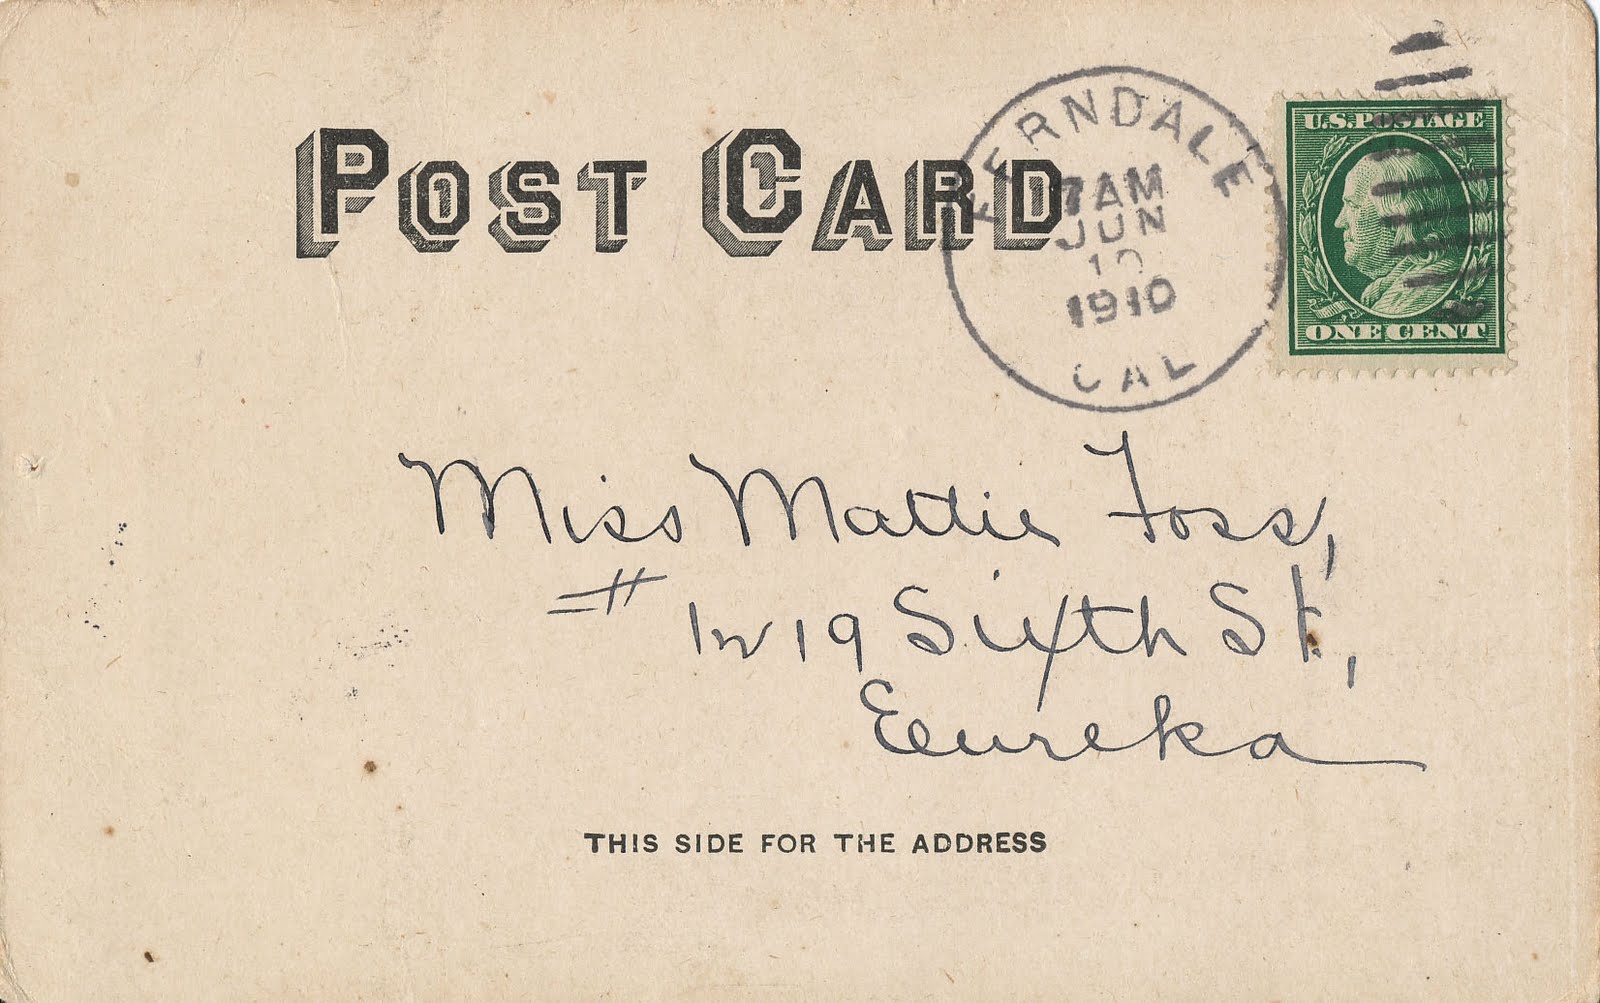 POST CARD
FERNDALE
7 AM
JUN
10
1910
CAL
U.S. POSTAGE
ONE CENT
Miss Mattie Foss,
# 1219 Sixth St,
Eureka
THIS SIDE FOR THE ADDRESS